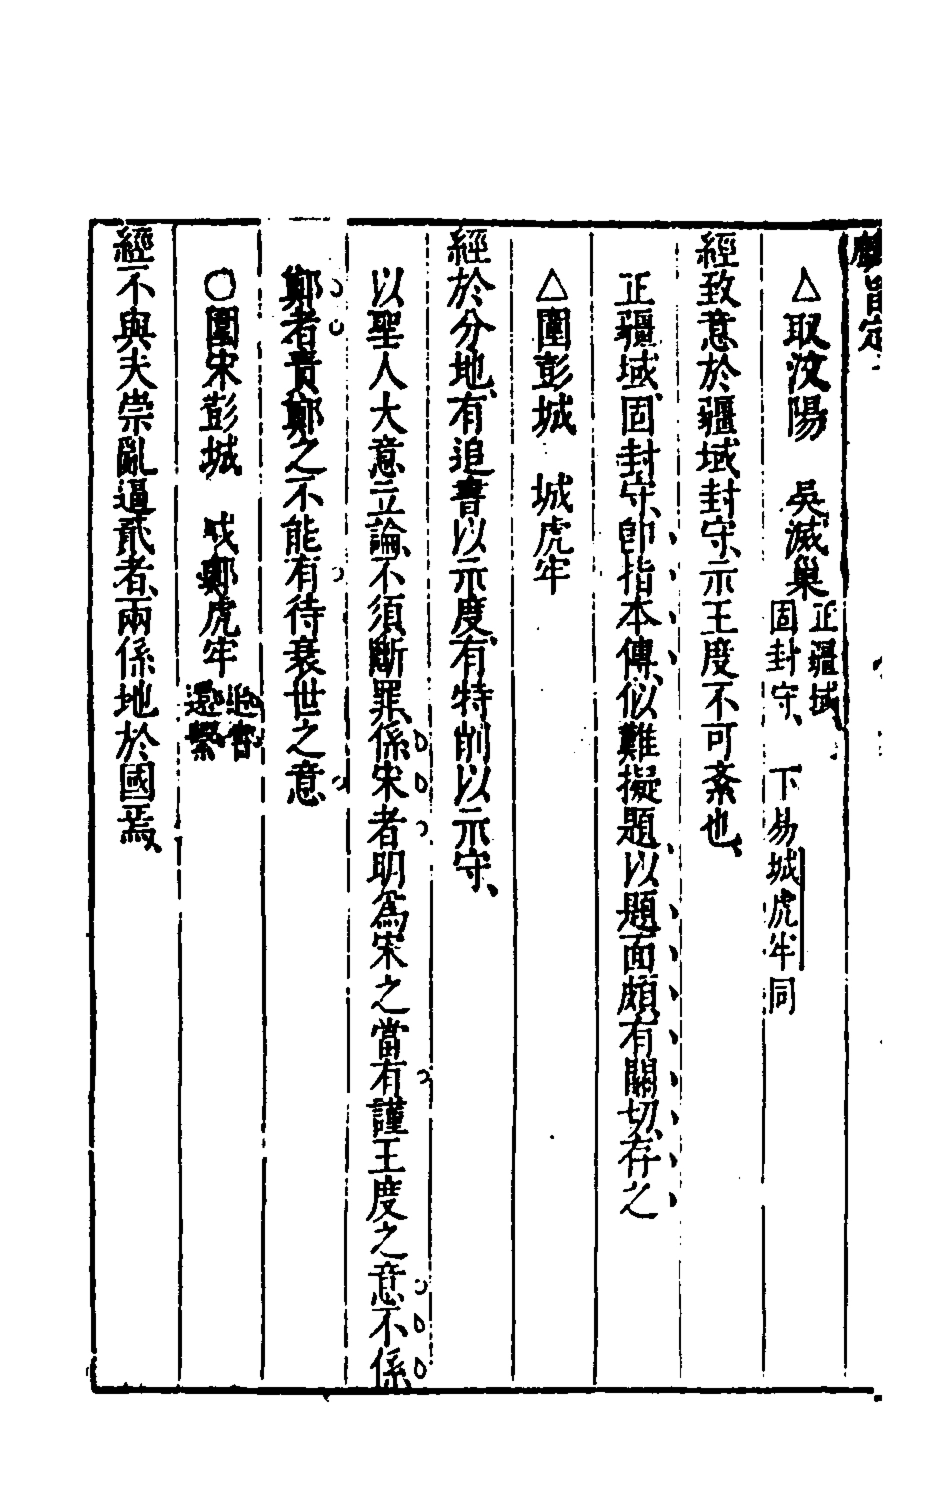 旨定
△取汶陽　吳滅巢正疆域固封守、下易城虎牢同
經致意於疆域封守、示王度不可紊也、
正疆域、固封守、卽指本傳、似難擬題、以題面頗有關切、存之
△圍彭城　城虎牢
經於分地、有追書以示度、有特削以示守、
以聖人大意立論、不須斷罪、係宋者明爲宋之當有謹王度之意不係
鄭者責鄭之不能有待衰世之意
○圍宋彭城　戍鄭虎牢追書還繫
經不與夫崇亂逼貳者、兩係地於國焉、